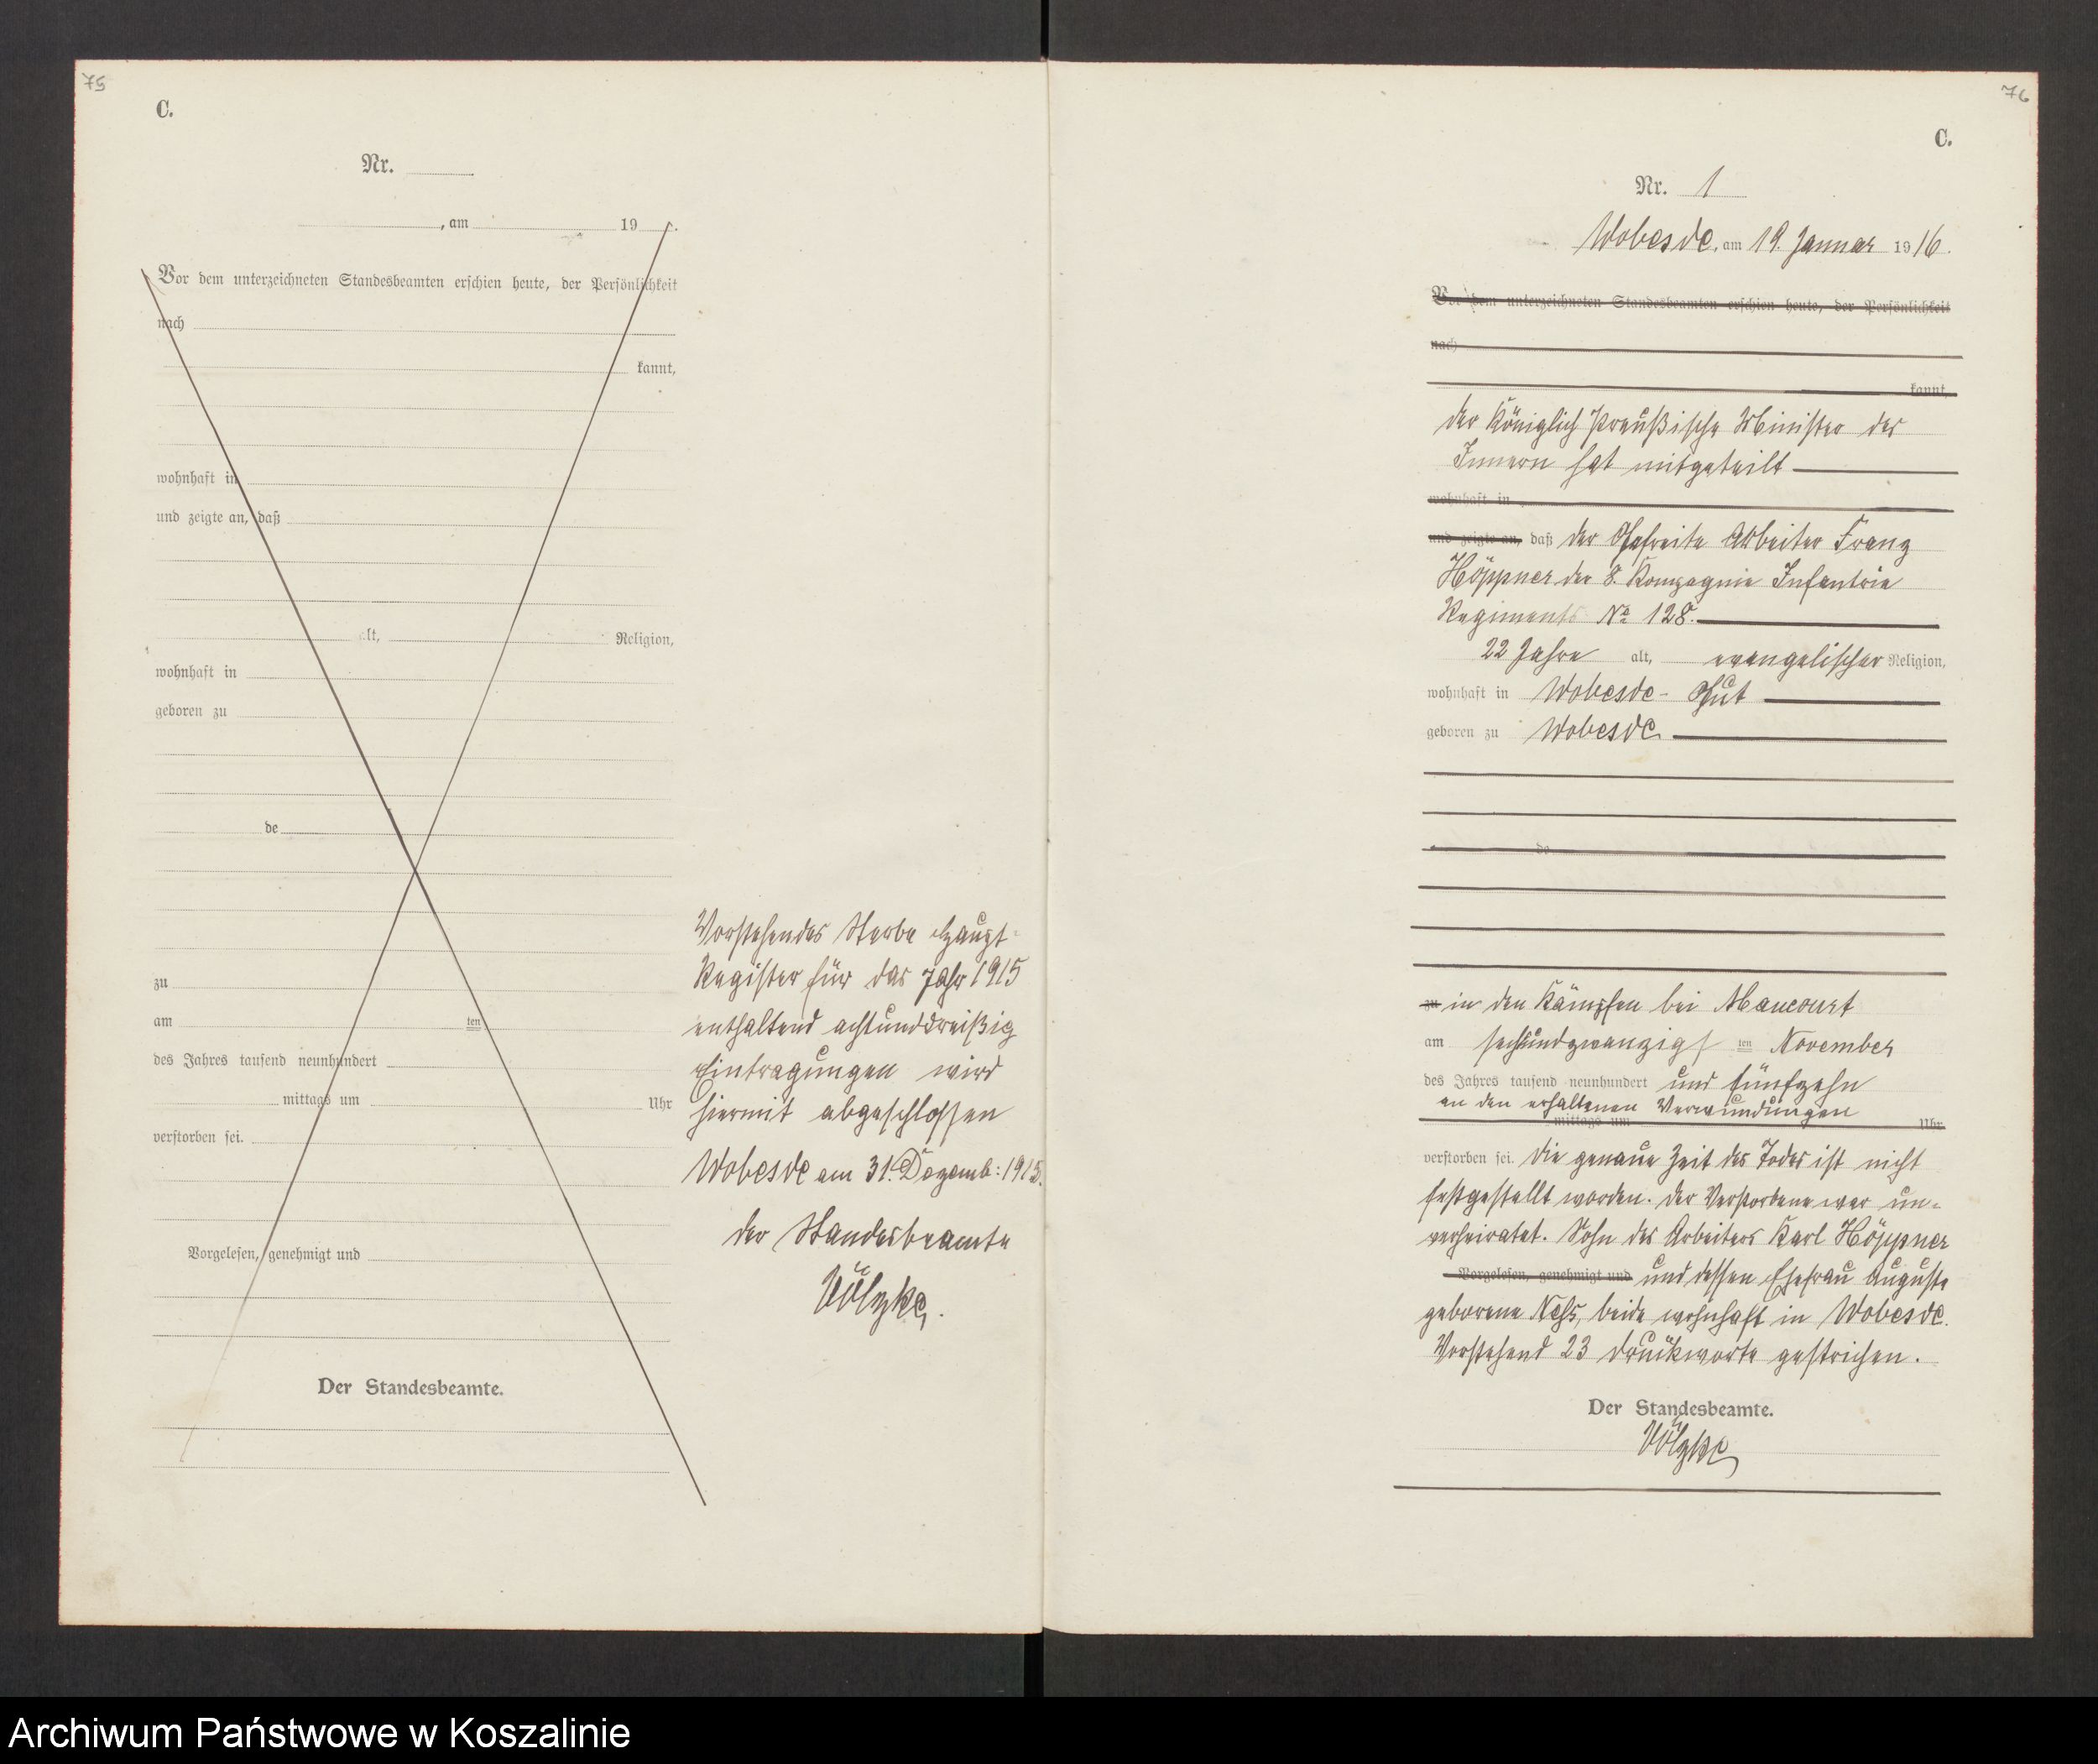 75
C.
Nr.
, am 19 .
Vor dem unterzeichneten Standesbeamten erschien heute, der Persönlichkeit
nach
kannt,
wohnhaft in
und zeigte an, daß
alt, Religion,
wohnhaft in
geboren zu
de
zu
am ten
des Jahres tausend neunhundert
mittags um Uhr
verstorben sei.
Vorgelesen, genehmigt und
Der Standesbeamte.
Vorstehendes Sterbe Haupt-
Register für das Jahr 1915
enthaltend achtunddreißig
Eintragungen wird
hiermit abgeschlossen
Wobesde am 31. Dezemb: 1915.
Der Standesbeamte
Völzke.
76
C.
Nr. 1
Wobesde, am 19. Januar 1916.
Vor dem unterzeichneten Standesbeamten erschien heute, der Persönlichkeit
nach
kannt,
Der Königlich Preußische Minister des
Innern hat mitgeteilt
wohnhaft in
und zeigte an, daß der Gefreite Arbeiter Franz
Höppner der 8. Kompagnie Infantrie
Regiments No 128.
22 Jahre alt, evangelischer Religion,
wohnhaft in Wobesde- Gut
geboren zu Wobesde
de
zu in den Kämpfen bei
am sechsundzwanzigs ten November
des Jahres tausend neunhundert und fünfzehn
an den erhaltenen Verwundungen
mittags um Uhr
verstorben sei. Die genaue Zeit des Todes ist nicht
festgestellt worden. Der Verstorbene war un-
verheiratet. Sohn des Arbeiters Karl Höppner
Vorgelesen, genehmigt und und dessen Ehefrau Auguste
geborene beide wohnhaft in Wobesde.
Vorstehend 23 Druckworte gestrichen.
Der Standesbeamte.
Völzke
Archiwum Państwowe w Koszalinie